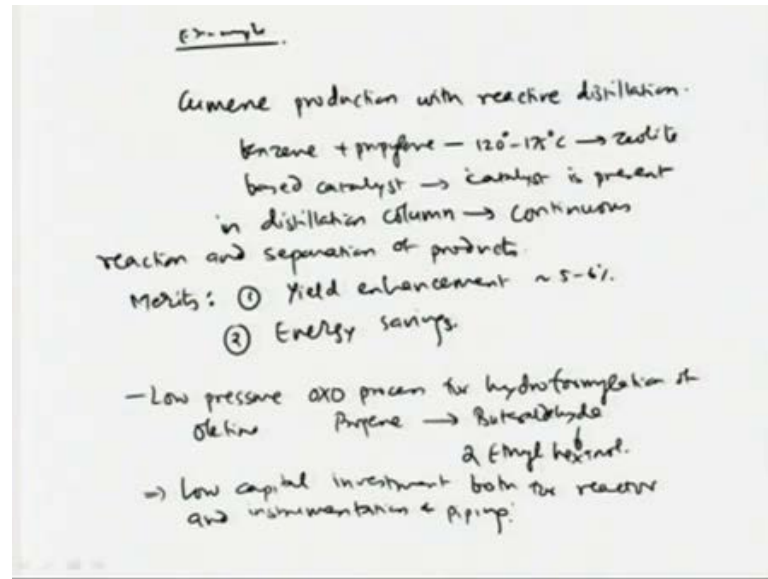 Example.
Cumene production with reactive distillation.
benzene + propylene – 120°–175°C → zeolite
based catalyst → catalyst is present
in distillation column → continuous
reaction and separation of products.
Merits: ① Yield enhancement ~ 5-6%.
② Energy savings.
– Low pressure OXO process for hydroformylation of
olefins Propene → Buteraldehyde
↓
2 Ethyl hexanol.
⇒ Low capital investment both for reactor
and instrumentation & piping.